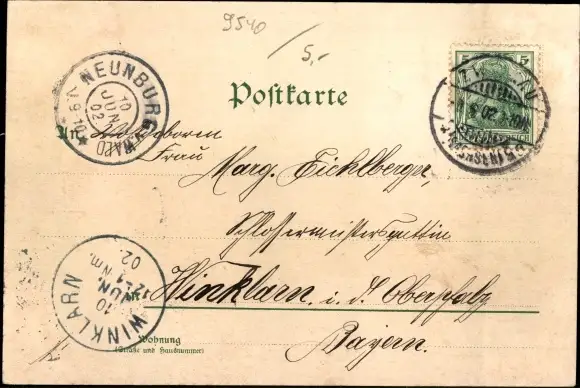 9540
5,-
NEUNBURG V/WALD
10
JUN
02
Postkarte
5 5
An Wohlgeboren
Frau
Marg. Eichlberger,
Schlossermeistersgattin
in Winklarn i. d. Oberpfalz
Bayern.
Wohnung
(Straße und Hausnummer)
WINKLARN
10
JUN.
12-1 Nm.
02